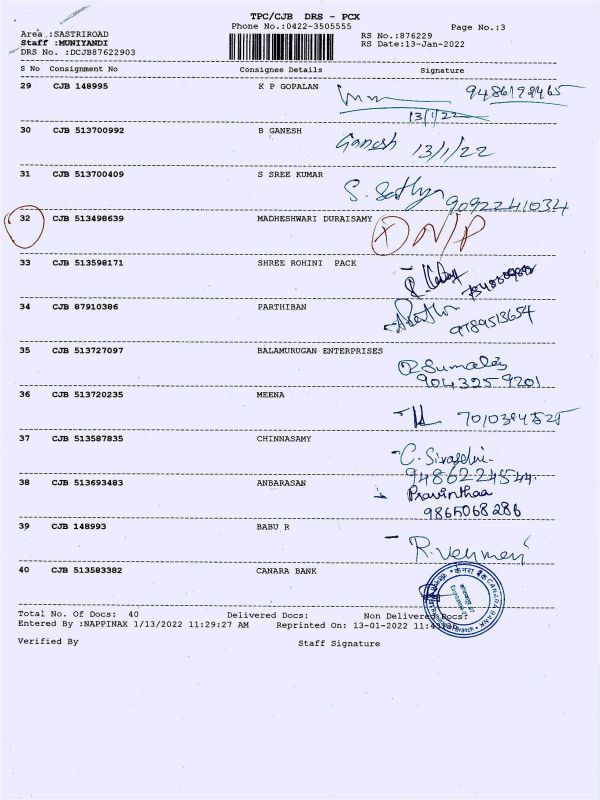 TPC/CJB DRS - PCX
Phone No.:0422-3505555 Page No.:3
Area :SASTRIROAD RS No.:876229
Staff :MUNIYANDI RS Date:13-Jan-2022
DRS No. :DCJB87622903
S No Consignment No Consignee Details Signature
29 CJB 148995 K P GOPALAN 9486192465
13/1/22
30 CJB 513700992 B GANESH Ganesh 13/1/22
31 CJB 513700409 S SREE KUMAR S. Sathya 9092241034
32 CJB 513498639 MADHESHWARI DURAISAMY X N/P
33 CJB 513598171 SHREE ROHINI PACK
34 CJB 87910386 PARTHIBAN 9789513654
35 CJB 513727097 BALAMURUGAN ENTERPRISES
9043259201
36 CJB 513720235 MEENA
37 CJB 513587835 CHINNASAMY
38 CJB 513693483 ANBARASAN Pravinthaa
9865068286
39 CJB 148993 BABU R
40 CJB 513583382 CANARA BANK
केनरा बैंक CANARA BANK
Total No. Of Docs: 40 Delivered Docs: Non Delivered Docs:
Entered By :NAPPINAX 1/13/2022 11:29:27 AM Reprinted On: 13-01-2022
Verified By Staff Signature